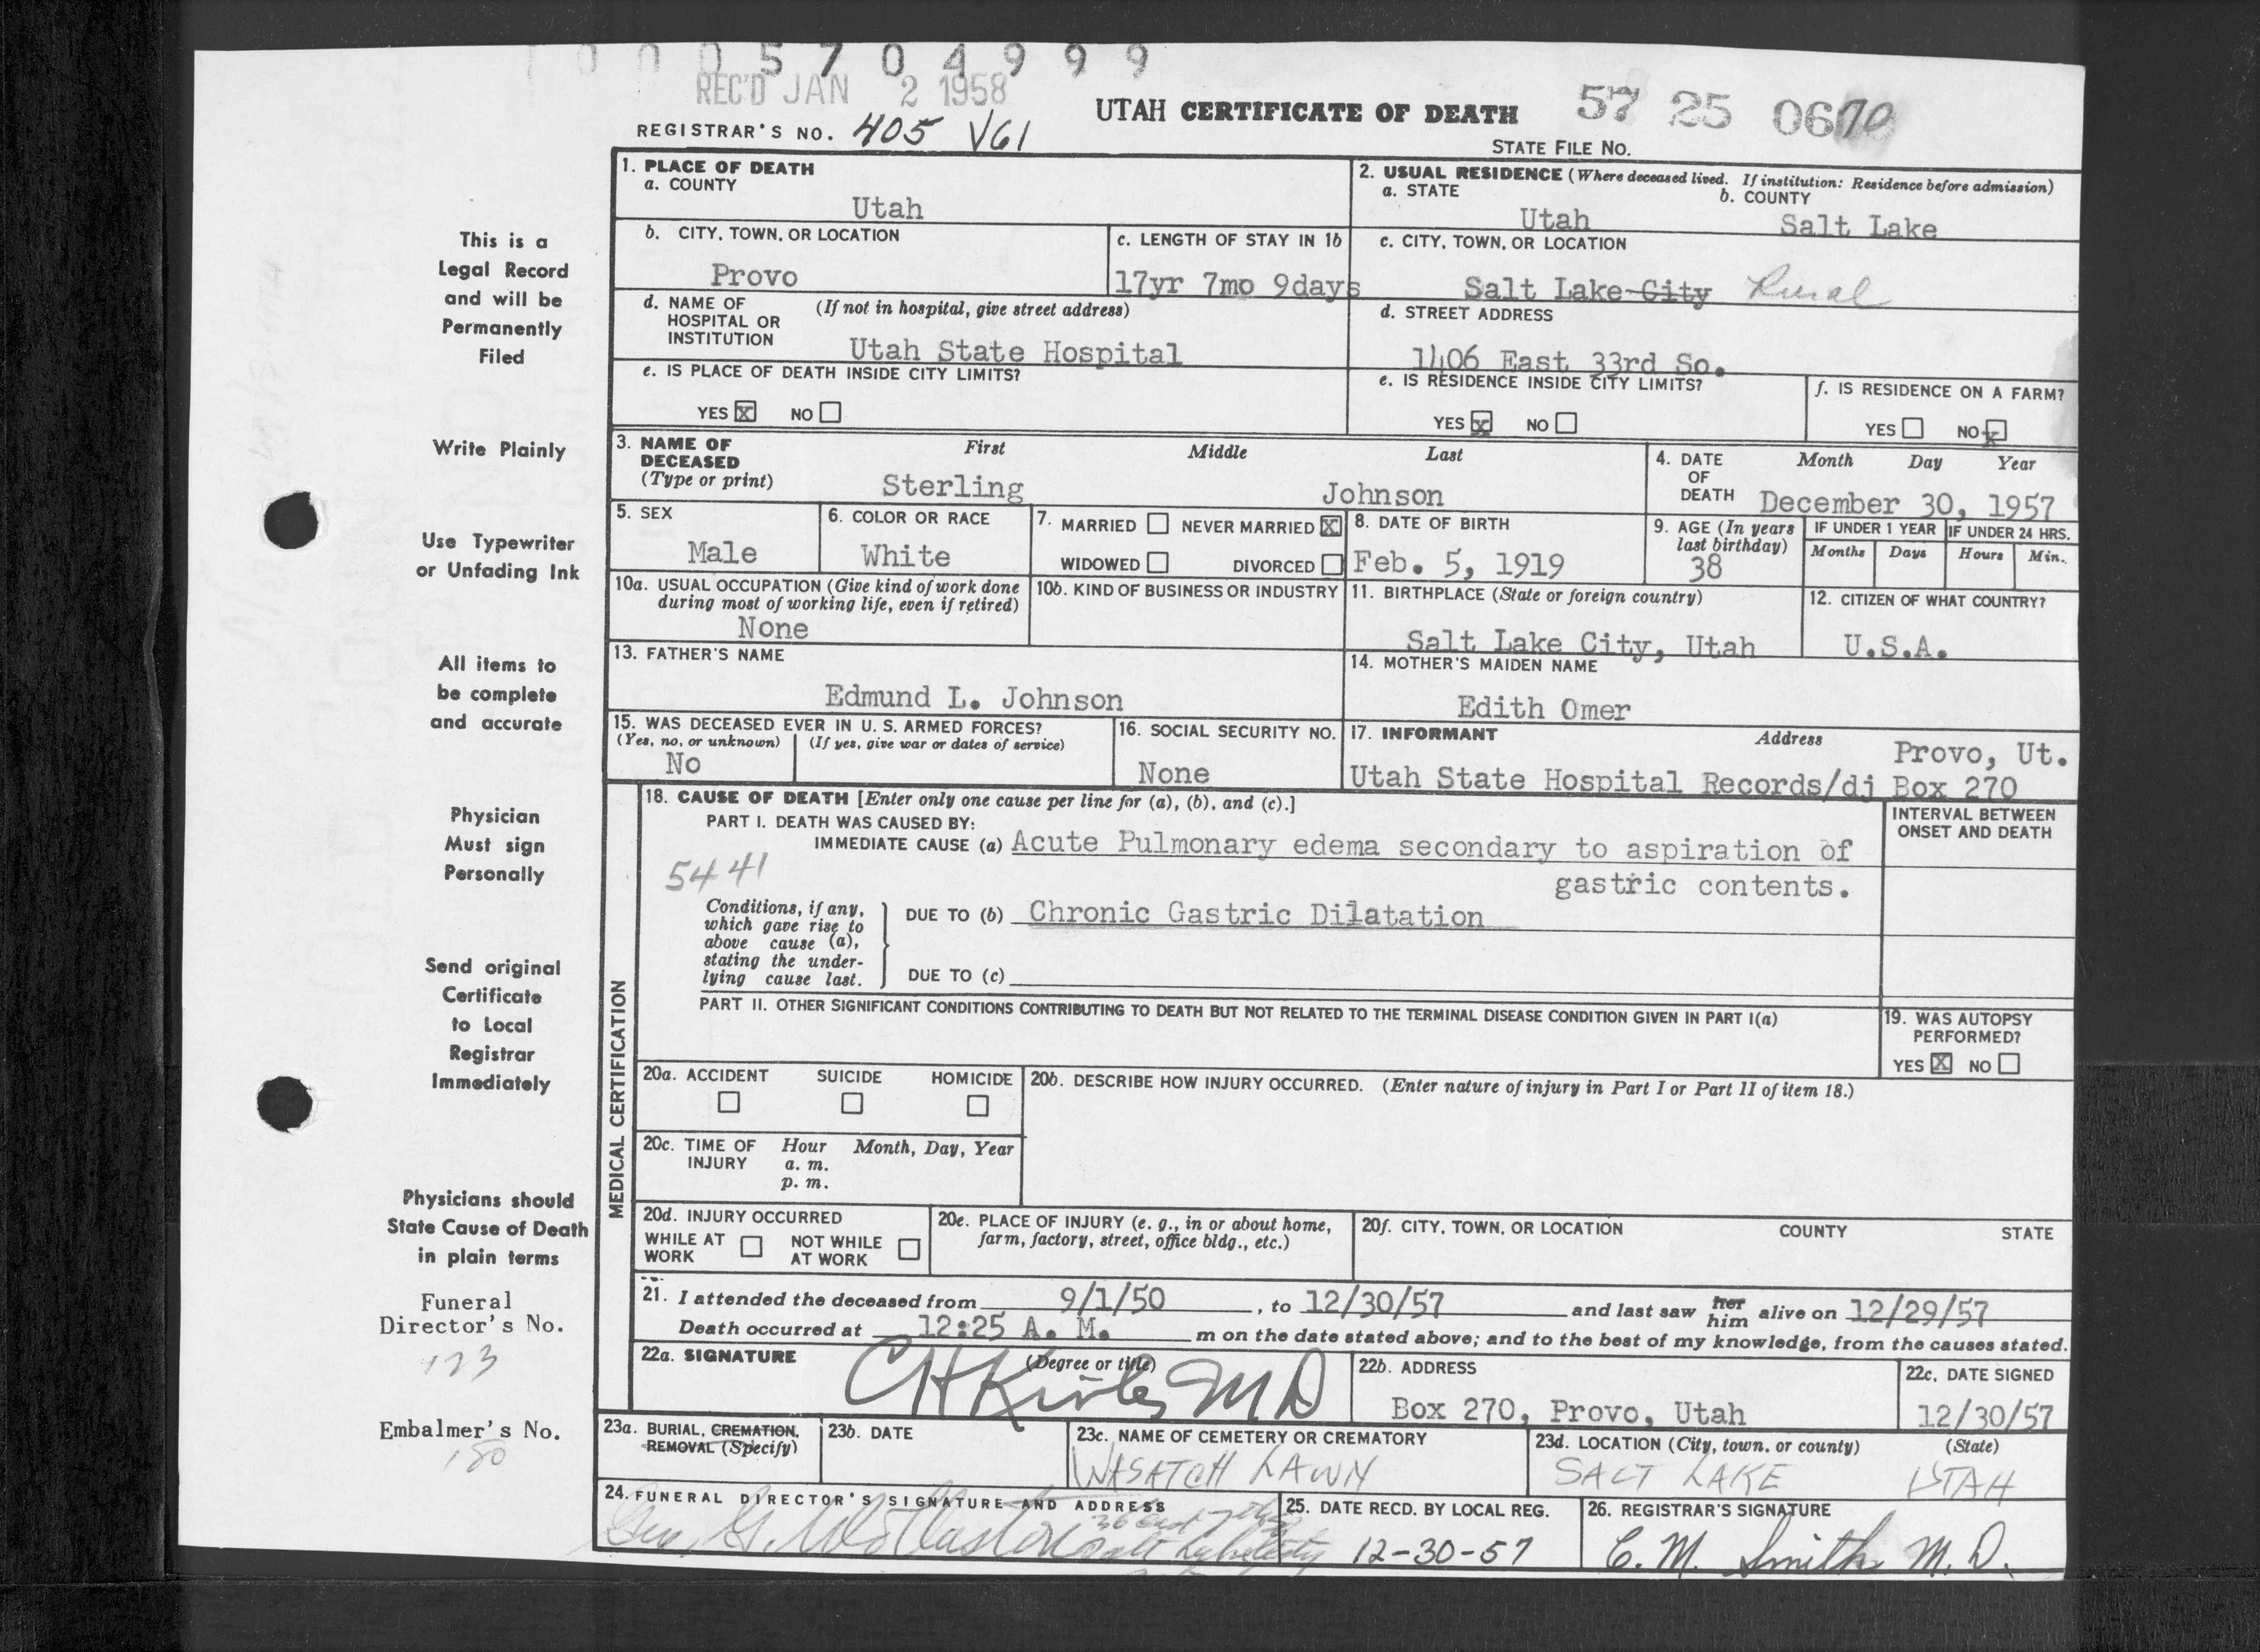 0005704999
REC'D JAN 2 1958
UTAH CERTIFICATE OF DEATH 57 25 0670
REGISTRAR'S NO. 405 V61
STATE FILE NO.
1. PLACE OF DEATH
a. COUNTY
Utah
2. USUAL RESIDENCE (Where deceased lived. If institution: Residence before admission)
a. STATE b. COUNTY
Utah Salt Lake
b. CITY, TOWN, OR LOCATION
Provo
c. LENGTH OF STAY IN 1b
17yr 7mo 9days
c. CITY, TOWN, OR LOCATION
Salt Lake City Rural
d. NAME OF HOSPITAL OR INSTITUTION (If not in hospital, give street address)
Utah State Hospital
d. STREET ADDRESS
1406 East 33rd So.
e. IS PLACE OF DEATH INSIDE CITY LIMITS?
YES X NO
e. IS RESIDENCE INSIDE CITY LIMITS?
YES X NO
f. IS RESIDENCE ON A FARM?
YES NO X
3. NAME OF DECEASED (Type or print) First Middle Last
Sterling Johnson
4. DATE OF DEATH Month Day Year
December 30, 1957
5. SEX
Male
6. COLOR OR RACE
White
7. MARRIED NEVER MARRIED X
WIDOWED DIVORCED
8. DATE OF BIRTH
Feb. 5, 1919
9. AGE (In years last birthday)
38
IF UNDER 1 YEAR IF UNDER 24 HRS.
Months Days Hours Min.
10a. USUAL OCCUPATION (Give kind of work done during most of working life, even if retired)
None
10b. KIND OF BUSINESS OR INDUSTRY
11. BIRTHPLACE (State or foreign country)
Salt Lake City, Utah
12. CITIZEN OF WHAT COUNTRY?
U.S.A.
13. FATHER'S NAME
Edmund L. Johnson
14. MOTHER'S MAIDEN NAME
Edith Omer
15. WAS DECEASED EVER IN U. S. ARMED FORCES?
(Yes, no, or unknown) (If yes, give war or dates of service)
No
16. SOCIAL SECURITY NO.
None
17. INFORMANT Address
Provo, Ut.
Utah State Hospital Records/dj Box 270
MEDICAL CERTIFICATION
18. CAUSE OF DEATH [Enter only one cause per line for (a), (b), and (c).]
PART I. DEATH WAS CAUSED BY:
IMMEDIATE CAUSE (a) Acute Pulmonary edema secondary to aspiration of
gastric contents.
INTERVAL BETWEEN ONSET AND DEATH
5441
Conditions, if any, which gave rise to above cause (a), stating the underlying cause last.
DUE TO (b) Chronic Gastric Dilatation
DUE TO (c)
PART II. OTHER SIGNIFICANT CONDITIONS CONTRIBUTING TO DEATH BUT NOT RELATED TO THE TERMINAL DISEASE CONDITION GIVEN IN PART I(a)
19. WAS AUTOPSY PERFORMED?
YES X NO
20a. ACCIDENT SUICIDE HOMICIDE
20b. DESCRIBE HOW INJURY OCCURRED. (Enter nature of injury in Part I or Part II of item 18.)
20c. TIME OF INJURY Hour Month, Day, Year
a. m.
p. m.
20d. INJURY OCCURRED
WHILE AT WORK NOT WHILE AT WORK
20e. PLACE OF INJURY (e. g., in or about home, farm, factory, street, office bldg., etc.)
20f. CITY, TOWN, OR LOCATION COUNTY STATE
21. I attended the deceased from 9/1/50, to 12/30/57 and last saw her him alive on 12/29/57
Death occurred at 12:25 A. M. m on the date stated above; and to the best of my knowledge, from the causes stated.
22a. SIGNATURE (Degree or title)
MD
22b. ADDRESS
Box 270, Provo, Utah
22c. DATE SIGNED
12/30/57
23a. BURIAL, CREMATION, REMOVAL (Specify)
23b. DATE
23c. NAME OF CEMETERY OR CREMATORY
WASATCH LAWN
23d. LOCATION (City, town, or county) (State)
SALT LAKE UTAH
24. FUNERAL DIRECTOR'S SIGNATURE AND ADDRESS
25. DATE RECD. BY LOCAL REG.
12-30-57
26. REGISTRAR'S SIGNATURE
C. M. Smith M.D.
This is a
Legal Record
and will be
Permanently
Filed
Write Plainly
Use Typewriter
or Unfading Ink
All items to
be complete
and accurate
Physician
Must sign
Personally
Send original
Certificate
to Local
Registrar
Immediately
Physicians should
State Cause of Death
in plain terms
Funeral
Director's No.
123
Embalmer's No.
180